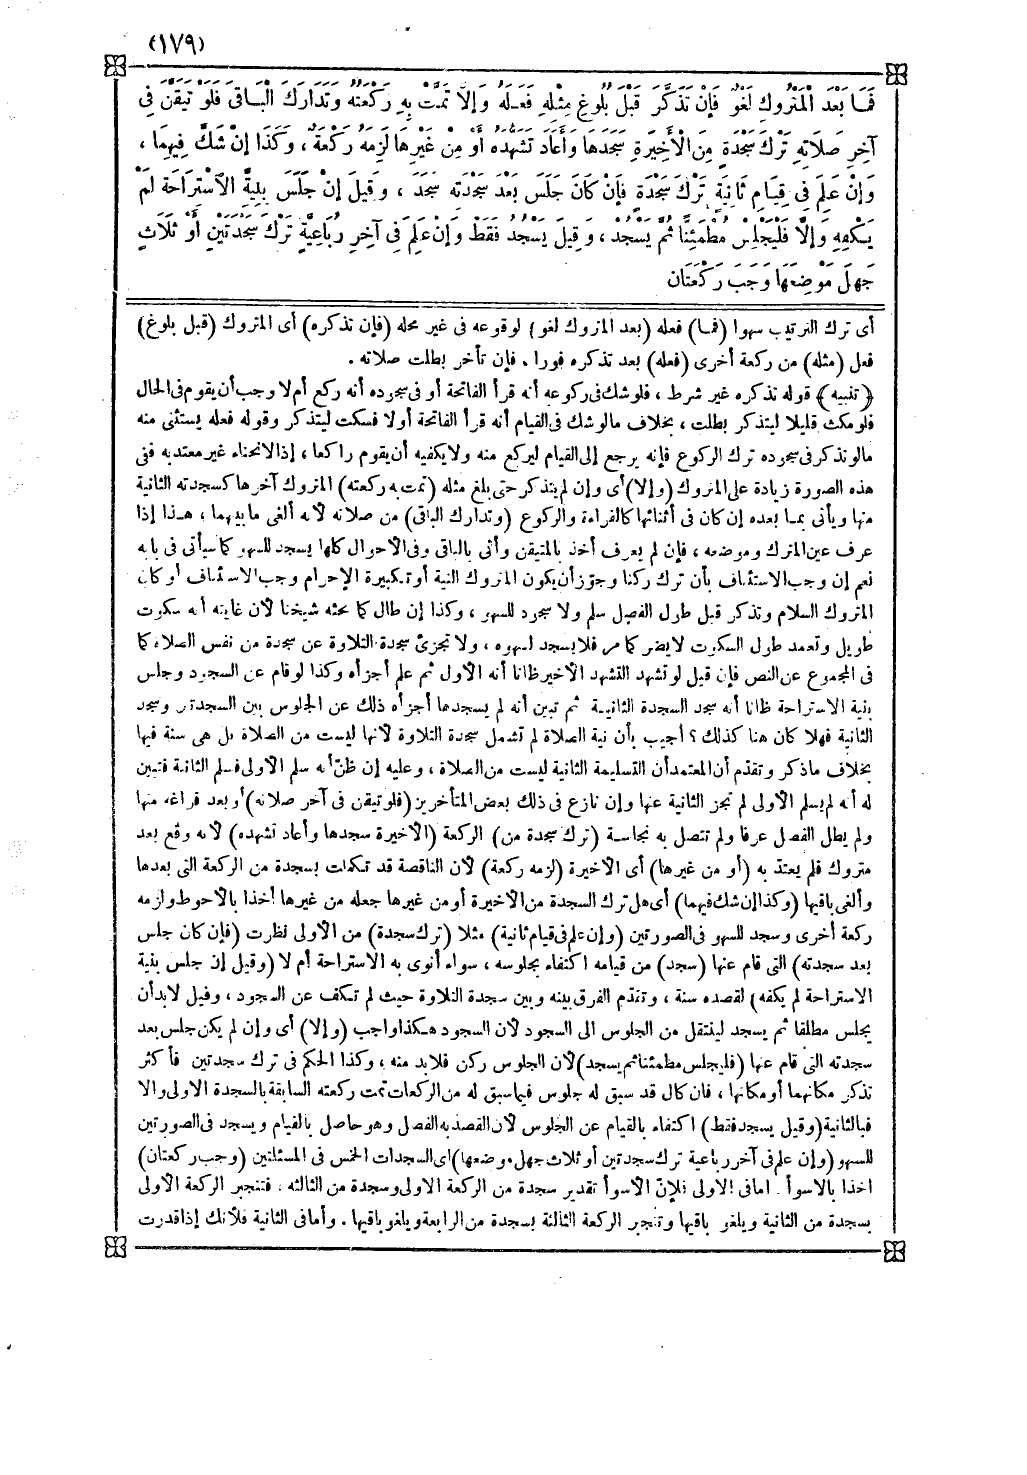 (١٧٩)
فَمَا بَعْدَ الْمَتْرُوكِ لَغْوٌ فَإِنْ تَذَكَّرَ قَبْلَ بُلُوغِ مِثْلِهِ فَعَلَهُ وَإِلَّا تَمَّتْ بِهِ رَكْعَتُهُ وَتَدَارَكَ الْبَاقِيَ فَلَوْ تَيَقَّنَ فِي
آخِرِ صَلَاتِهِ تَرْكَ سَجْدَةٍ مِنَ الْأَخِيرَةِ سَجَدَهَا وَأَعَادَ تَشَهُّدَهُ أَوْ مِنْ غَيْرِهَا لَزِمَهُ رَكْعَةٌ ، وَكَذَا إِنْ شَكَّ فِيهِمَا ،
وَإِنْ عَلِمَ فِي قِيَامِ ثَانِيَةٍ تَرْكَ سَجْدَةٍ فَإِنْ كَانَ جَلَسَ بَعْدَ سَجْدَتِهِ سَجَدَ ، وَقِيلَ إِنْ جَلَسَ بِنِيَّةِ الْاسْتِرَاحَةِ لَمْ
يَكْفِهِ وَإِلَّا فَلْيَجْلِسْ مُطْمَئِنًّا ثُمَّ يَسْجُدُ ، وَقِيلَ يَسْجُدُ فَقَطْ وَإِنْ عَلِمَ فِي آخِرِ رُبَاعِيَّةٍ تَرْكَ سَجْدَتَيْنِ أَوْ ثَلَاثٍ
جَهِلَ مَوْضِعَهَا وَجَبَ رَكْعَتَانِ
أى ترك الترتيب سهوا (فما) فعله (بعد المتروك لغو) لوقوعه فى غير محله (فإن تذكره) أى المتروك (قبل بلوغ)
فعل (مثله) من ركعة أخرى (فعله) بعد تذكره فورا ، فإن تأخر بطلت صلاته .
﴿ تنبيه ﴾ قوله تذكره غير شرط ، فلو شك فى ركوعه أنه قرأ الفاتحة أو فى سجوده أنه ركع أم لا وجب أن يقوم فى الحال
فلو مكث قليلا ليتذكر بطلت ، بخلاف مالو شك فى القيام أنه قرأ الفاتحة أولا فسكت ليتذكر وقوله فعله يستثنى منه
مالو تذكر فى سجوده ترك الركوع فإنه يرجع إلى القيام ليركع منه ولا يكفيه أن يقوم راكعا ، إذ الانحناء غير معتد به ففى
هذه الصورة زيادة على المتروك (وإلا) أى وإن لم يتذكر حتى بلغ مثله (تمت به ركعته) المتروك آخرها كسجدته الثانية
منها ويأتى بما بعده إن كان فى أثنائها كالقراءة والركوع (وتدارك الباقى) من صلاته لأنه ألغى ما بينهما ، هذا إذا
عرف عين المترك وموضعه ، فإن لم يعرف أخذ بالمتيقن وأتى بالباقى وفى الأحوال كلها يسجد للسهو كما سيأتى فى بابه
نعم إن وجب الاستئناف بأن ترك ركنا وجوز أن يكون المتروك النية أو تكبيرة الإحرام وجب الاستئناف أو كان
المتروك السلام وتذكر قبل طول الفصل سلم ولا سجود للسهو ، وكذا إن طال كما بحثه شيخنا لأن غايته أنه سكوت
طويل وتعمد طول السكوت لا يضر كما مر فلا يسجد لسهوه ، ولا تجزئ سجدة التلاوة عن سجدة من نفس الصلاة كما
فى المجموع عن النص فإن قيل لو تشهد التشهد الأخير ظانا أنه الأول ثم علم أجزأه وكذا لو قام عن السجود وجلس
بنية الاستراحة ظانا أنه سجد السجدة الثانية ثم تبين أنه لم يسجدها أجزأه ذلك عن الجلوس بين السجدتين وسجد
الثانية فهلا كان هنا كذلك ؟ أجيب بأن نية الصلاة لم تشمل سجدة التلاوة لأنها ليست من الصلاة بل هى سنة فيها
بخلاف ماذكر وتقدم أن المعتمد أن التسليمة الثانية ليست من الصلاة ، وعليه إن ظن أنه سلم الأولى فسلم الثانية فتبين
له أنه لم يسلم الأولى لم تجز الثانية عنها وإن نازع فى ذلك بعض المتأخرين (فلو تيقن فى آخر صلاته) أو بعد فراغه منها
ولم يطل الفصل عرفا ولم تتصل به نجاسة (ترك سجدة من) الركعة (الأخيرة سجدها وأعاد تشهده) لأنه وقع بعد
متروك فلم يعتد به (أو من غيرها) أى الأخيرة (لزمه ركعة) لأن الناقصة قد تكملت بسجدة من الركعة التى بعدها
وألغى باقيها (وكذا إن شك فيهما) أى هل ترك السجدة من الأخيرة أو من غيرها جعله من غيرها أخذا بالأحوط ولزمه
ركعة أخرى وسجد للسهو فى الصورتين (وإن علم فى قيام ثانية) مثلا (ترك سجدة) من الأولى نظرت (فإن كان جلس
بعد سجدته) التى قام عنها (سجد) من قيامه اكتفاء بجلوسه ، سواء أنوى به الاستراحة أم لا (وقيل إن جلس بنية
الاستراحة لم يكفه) لقصده سنة ، وتقدم الفرق بينه وبين سجدة التلاوة حيث لم تكف عن السجود ، وقيل لابد أن
يجلس مطلقا ثم يسجد لينتقل من الجلوس الى السجود لأن السجود هكذا واجب (وإلا) أى وإن لم يكن جلس بعد
سجدته التى قام عنها (فليجلس مطمئنا ثم يسجد) لأن الجلوس ركن فلابد منه ، وكذا الحكم فى ترك سجدتين فأكثر
تذكر مكانهما أو مكانها ، فان كان قد سبق له جلوس فيما سبق له من الركعات تمت ركعته السابقة بالسجدة الأولى والا
فبالثانية (وقيل يسجد فقط) اكتفاء بالقيام عن الجلوس لأن القصد به الفصل وهو حاصل بالقيام ويسجد فى الصورتين
للسهو (وإن علم فى آخر رباعية ترك سجدتين أو ثلاث جهل موضعها) اى السجدات الخمس فى المسئلتين (وجب ركعتان)
اخذا بالأسوأ . اما فى الأولى فلأن الأسوأ تقدير سجدة من الركعة الأولى وسجدة من الثالثة . فتنجبر الركعة الأولى
بسجدة من الثانية ويلغو باقيها وتنجبر الركعة الثالثة بسجدة من الرابعة ويلغو باقيها . وأما فى الثانية فلأنك إذا قدرت